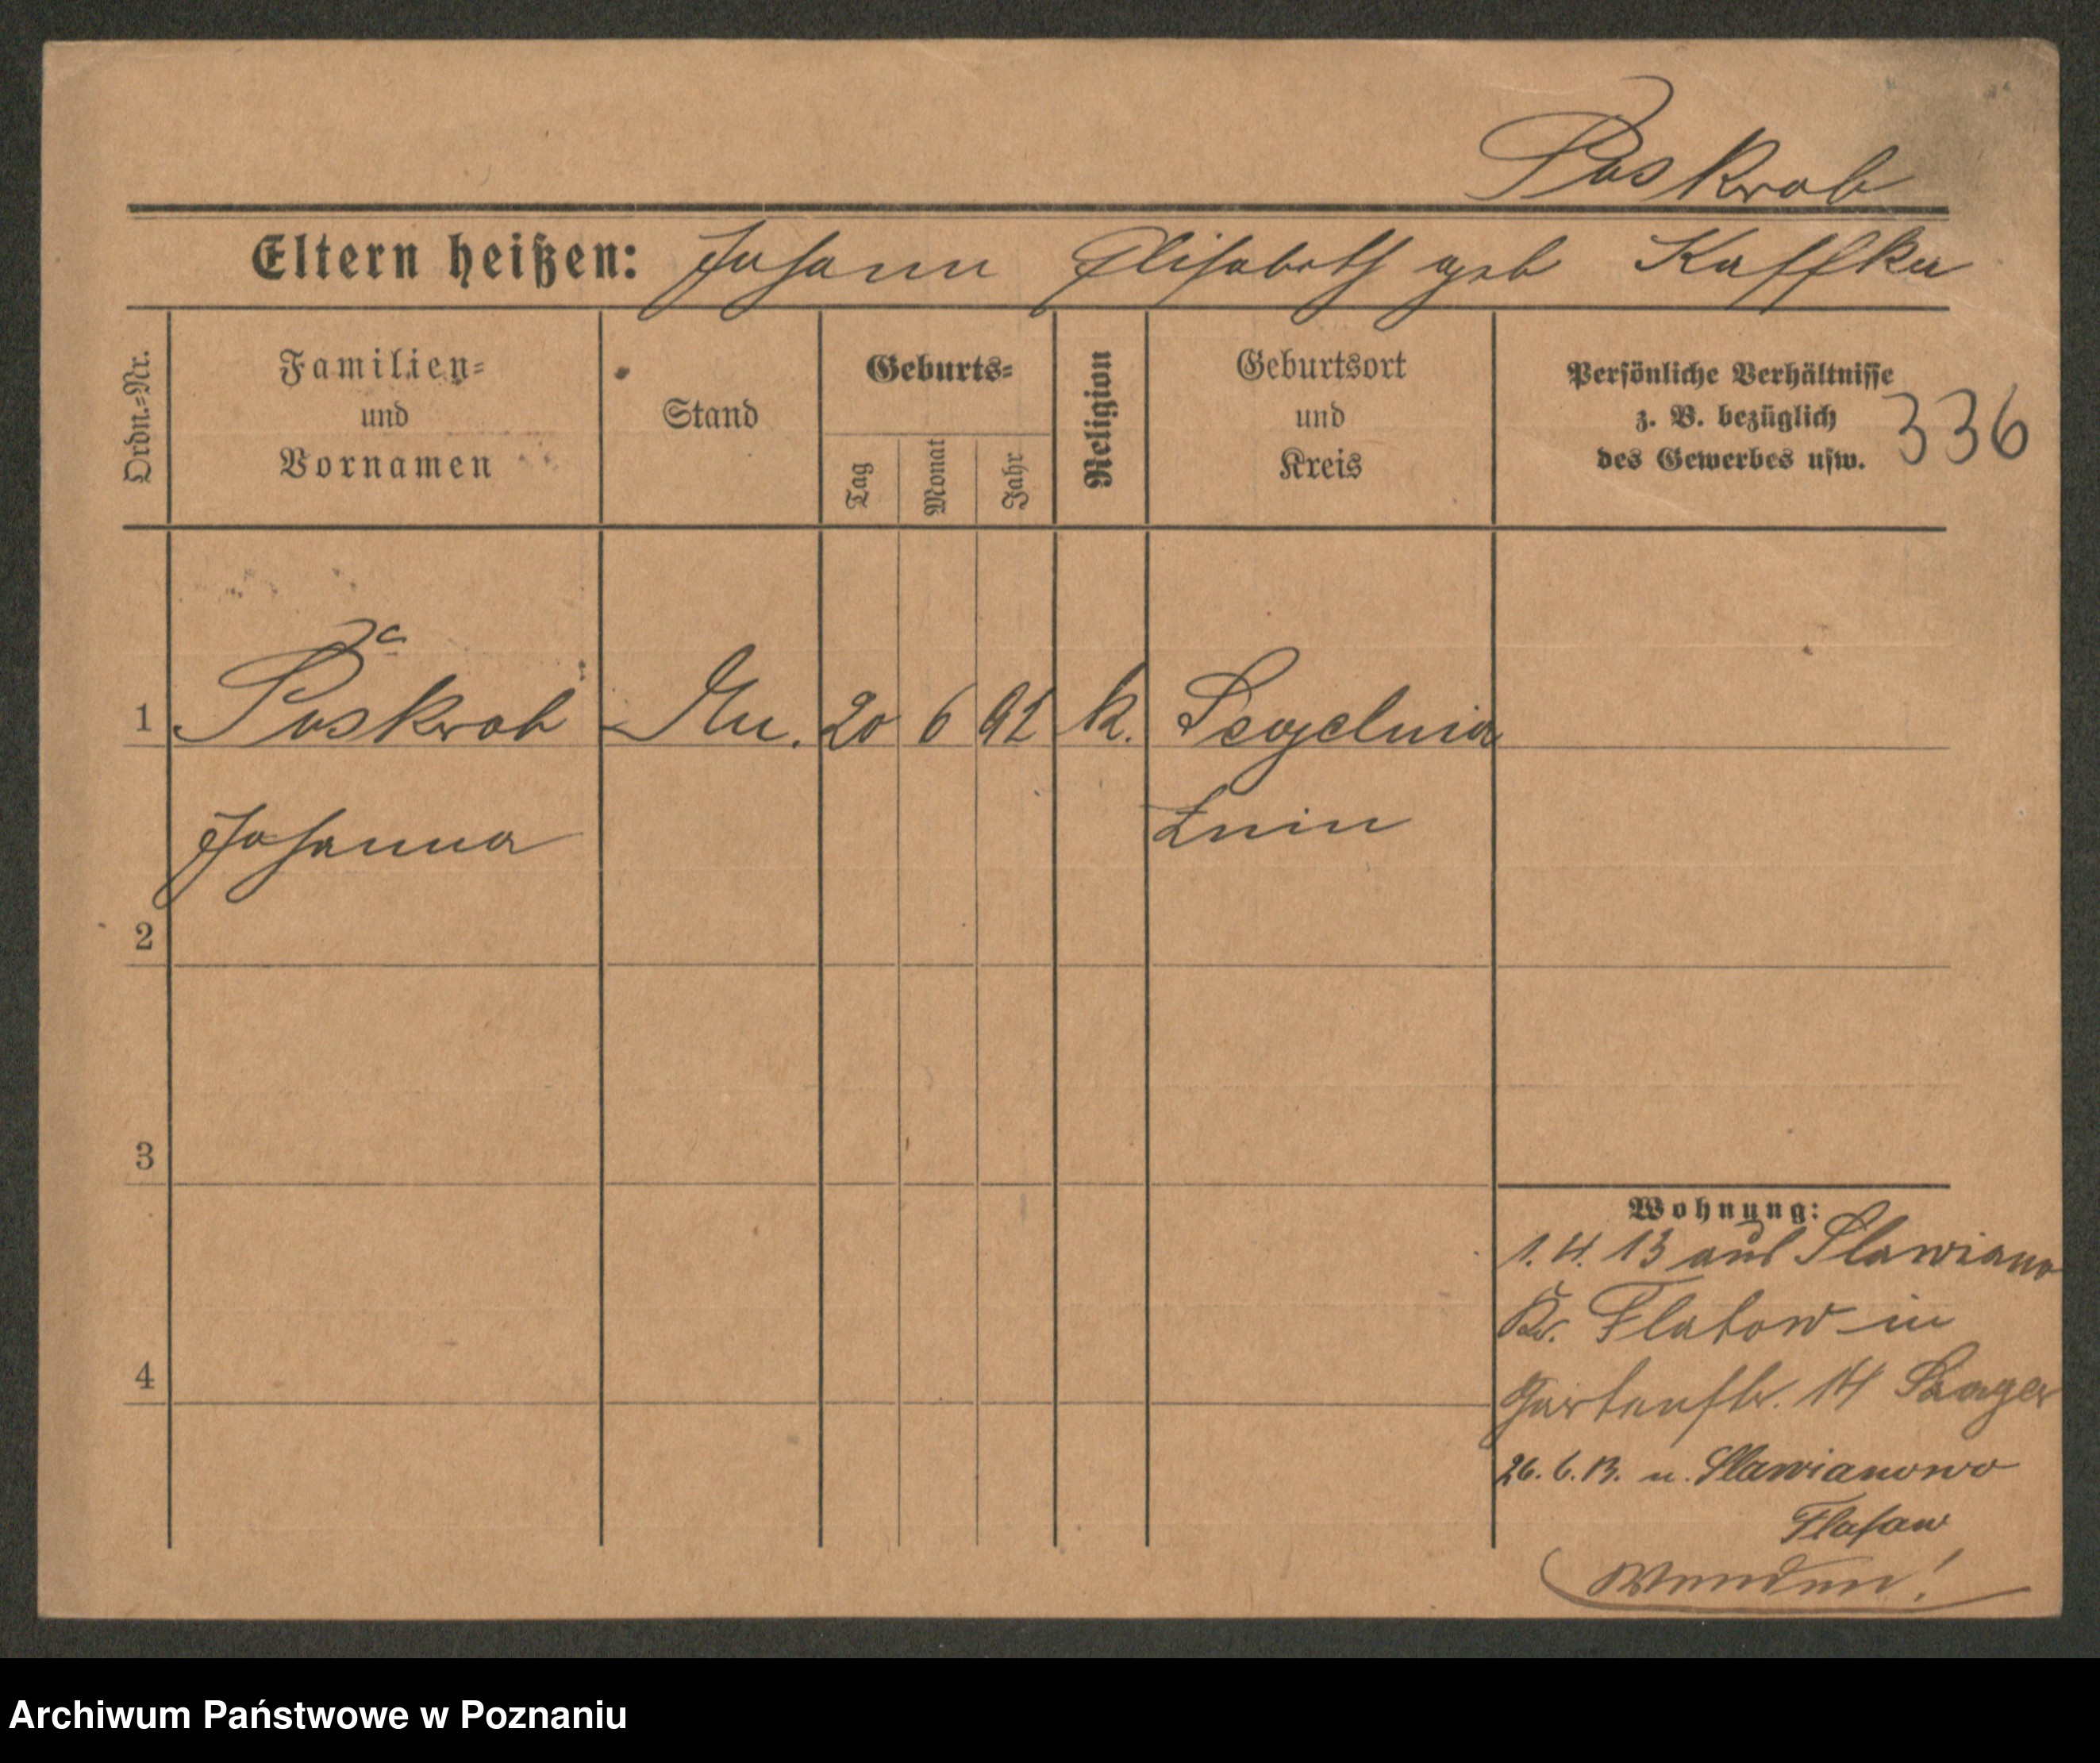 Poskrob
Eltern heißen: Johann Elisabeth geb Kaffka
Ordn.=Nr.
Familien=
und
Vornamen
Stand
Geburts=
Tag
Monat
Jahr
Religion
Geburtsort
und
Kreis
Persönliche Verhältnisse
z. B. bezüglich
des Gewerbes usw.
336
1 Poskrob 20 6 92 k.
Johanna Znin
2
3
4
Wohnung:
1. 4. 13 aus Slawiano
Kr. Flatow in
Gartenstr. 14
26. 6. 13. n. Slawianowo
Flatow
Wenden!
Archiwum Państwowe w Poznaniu